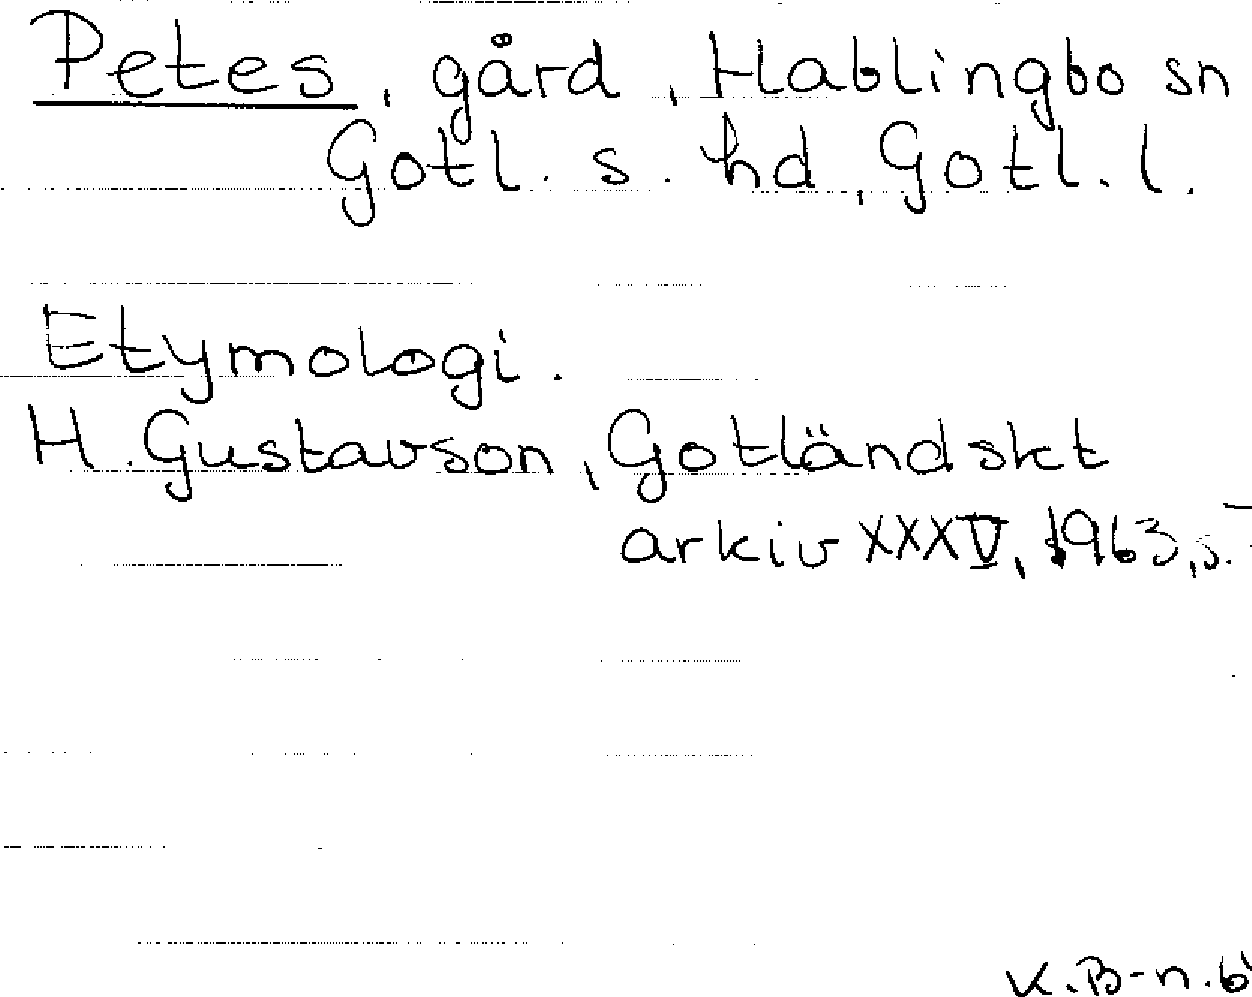 Petes, gård, Hablingbo sn
Gotl. s. hd, Gotl. l.
Etymologi.
H. Gustavson, Gotländskt
arkiv XXXV, 1963, s.
K.B-n.